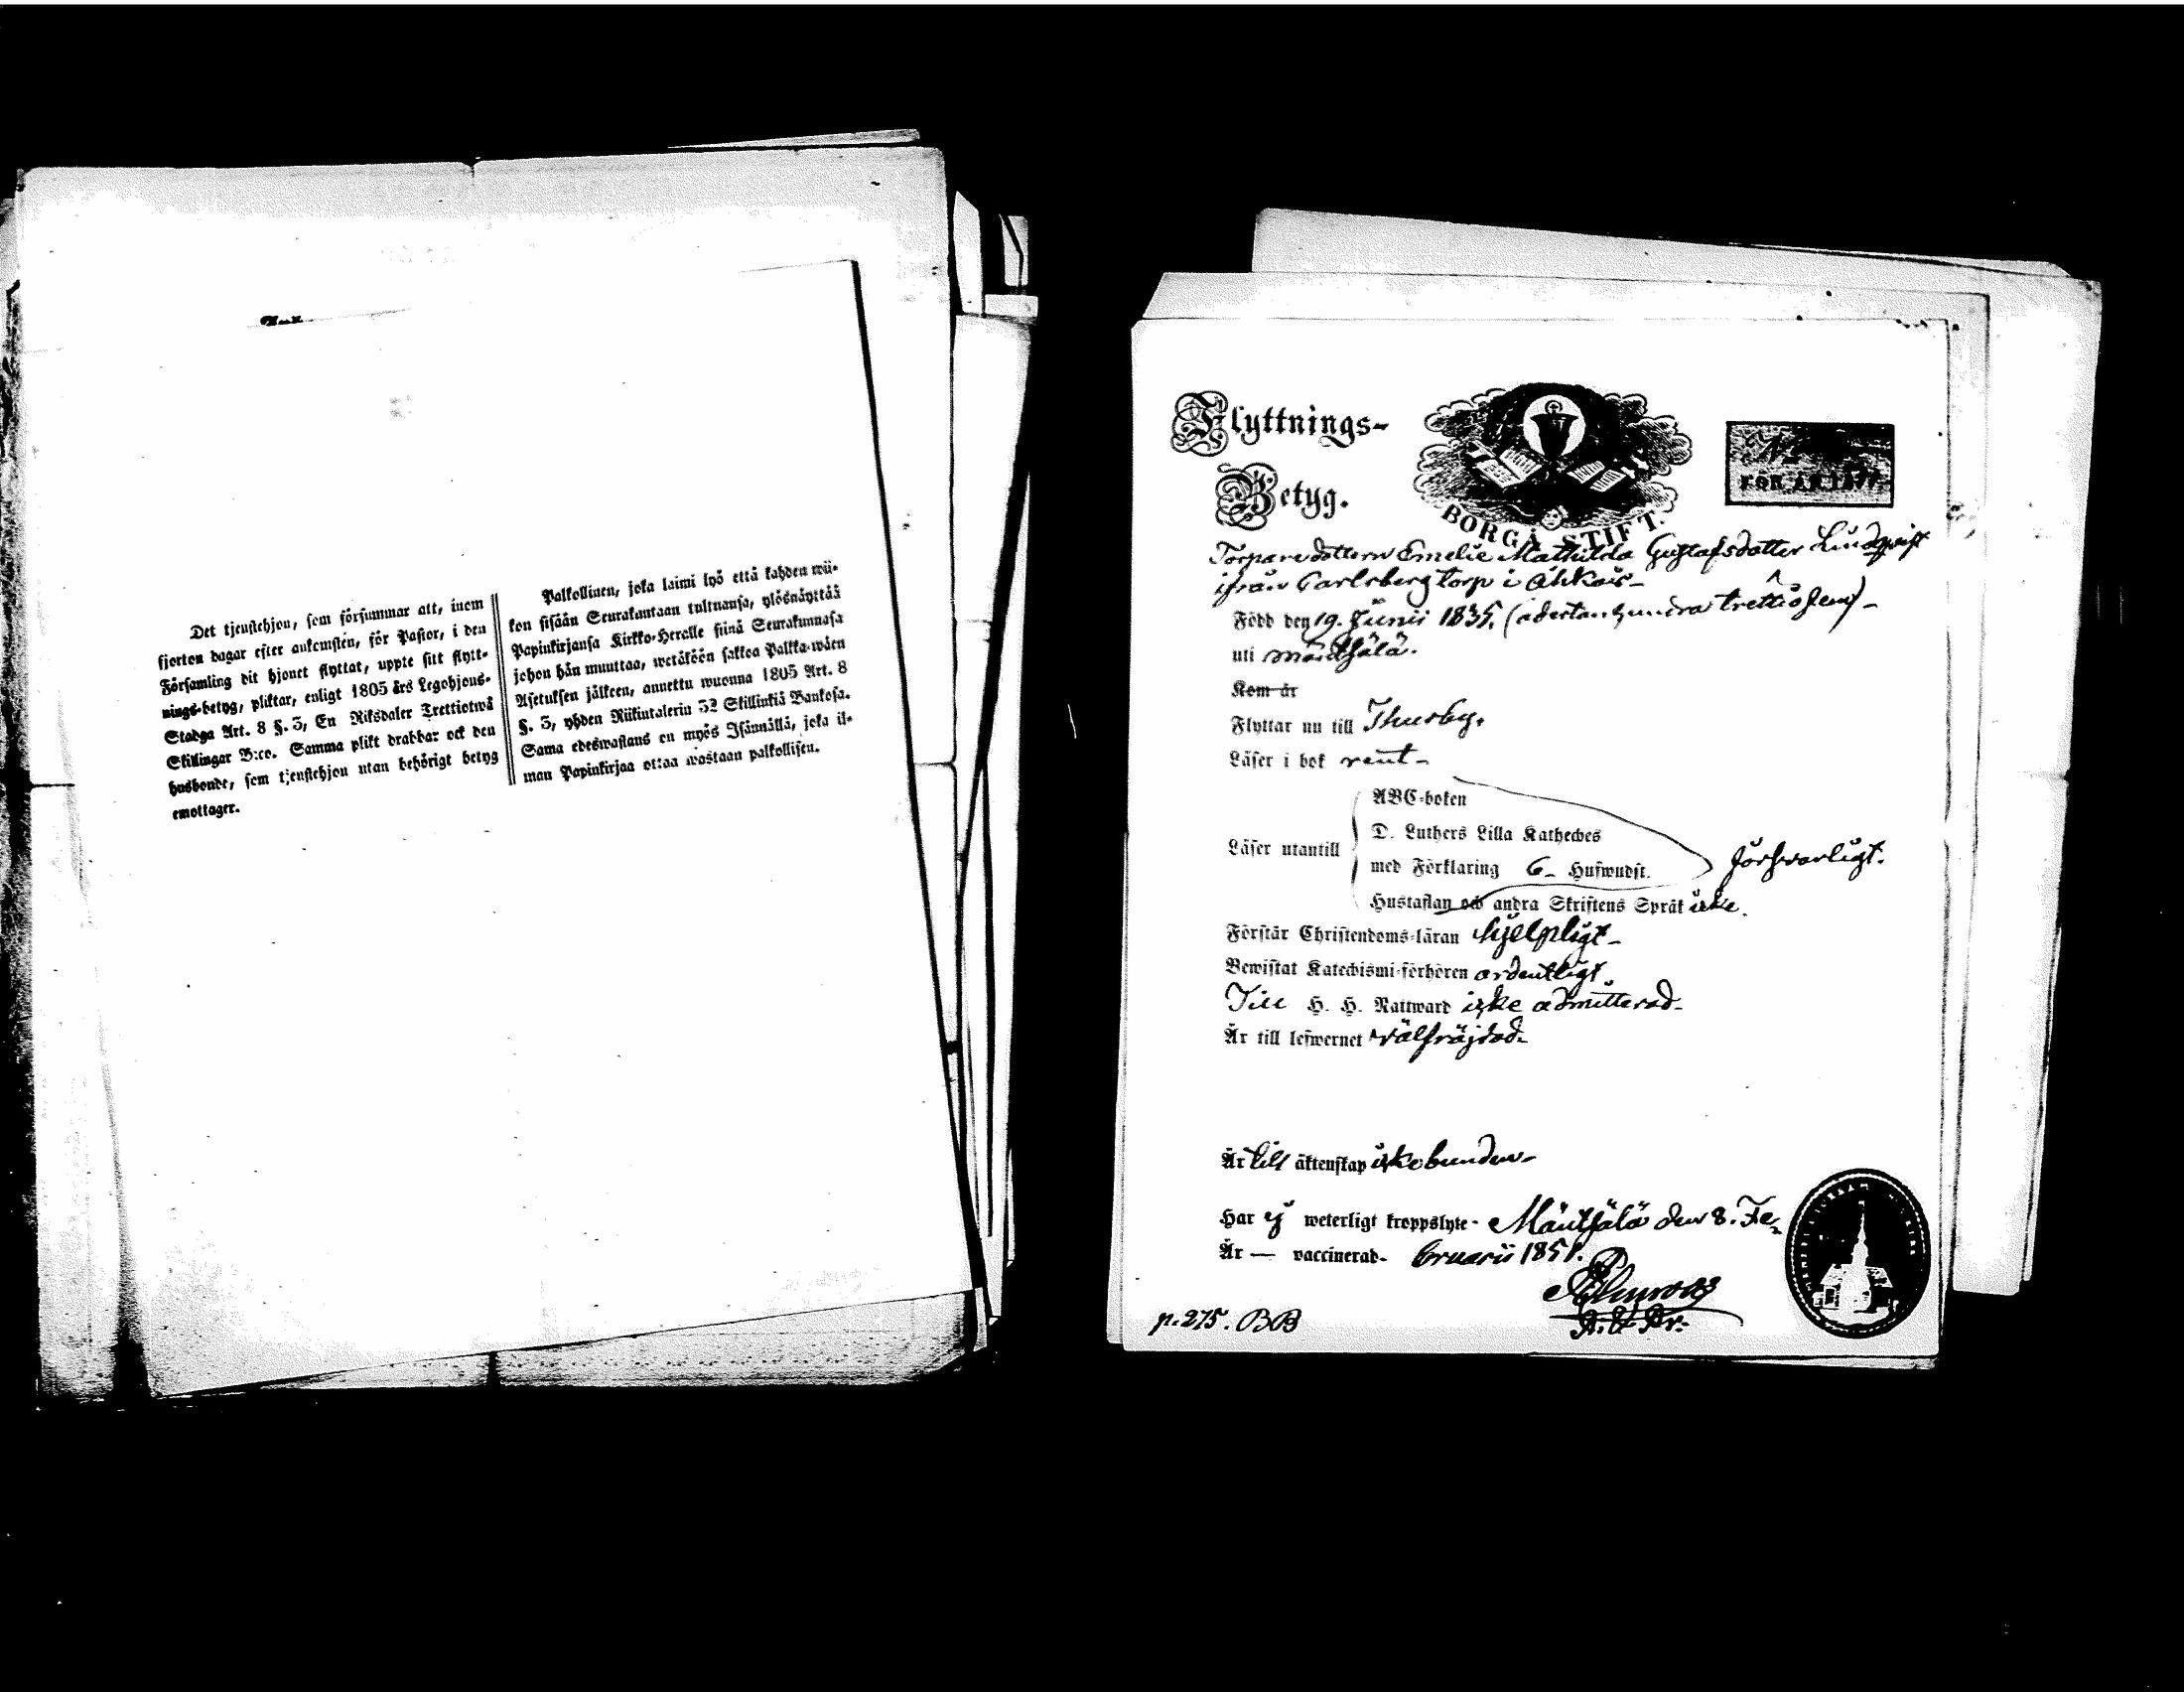 Det tjenstehjon, som försummar att, inom
fjorton dagar efter ankomsten, för Pastor, i den
Församling dit hjonet flyttat, uppte sitt flytt-
nings-betyg, pliktar, enligt 1805 års Legohjons-
Stadga Art. 8 §. 3, En Riksdaler Trettiotwå
Skillingar B:co. Samma plikt drabbar ock den
husbonde, som tjenstehjon utan behörigt betyg
emottager.
Palkollinen, joka laimi lyö että kahden wii-
kon sisään Seurakuntaan tultuansa, ylösnäyttää
Papinkirjansa Kirkko-Herralle siinä Seurakunnasa
johon hän muuttaa, wetäköön sakkoa Palkka-wäen
Asetuksen jälkeen, annettu wuonna 1805 Art. 8
§. 3, yhden Riikintalerin 32 Skillinkiä Bankosa.
Sama edeswastaus on myös Isännällä, joka il-
man Papinkirjaa ottaa wastaan palkollisen.
Flyttnings-
Betyg.
BORGÅ STIFT.
FÖR ÅR
Torparedottern Emelie Mathilda Gustafsdotter Lindqvist
ifrån Carlsberg torp i
Född den 19. Junii 1835. (adertonhundra trettio fem)-
uti Mäntsälä.
Kom år
Flyttar nu till Thusby.
Läser i bok rent-
ABC-boken
D. Luthers Lilla Kateches
Läser utantill
med Förklaring 6- Hufwudst.
försvarligt.
Hustaflan och andra Skriftens Språk icke.
Förstår Christendoms-läran hjelpligt-
Bewistat Katechismi-förhören ordentligt
Till H. H. Nattward icke admitterad-
Är till lefwernet välfräjdad-
Är till äktenskap icke bunden-
Har ej weterligt kroppslyte- Mäntsälä den 8. Fe-
Är — vaccinerad- bruarii 1851.
p. 275. BB